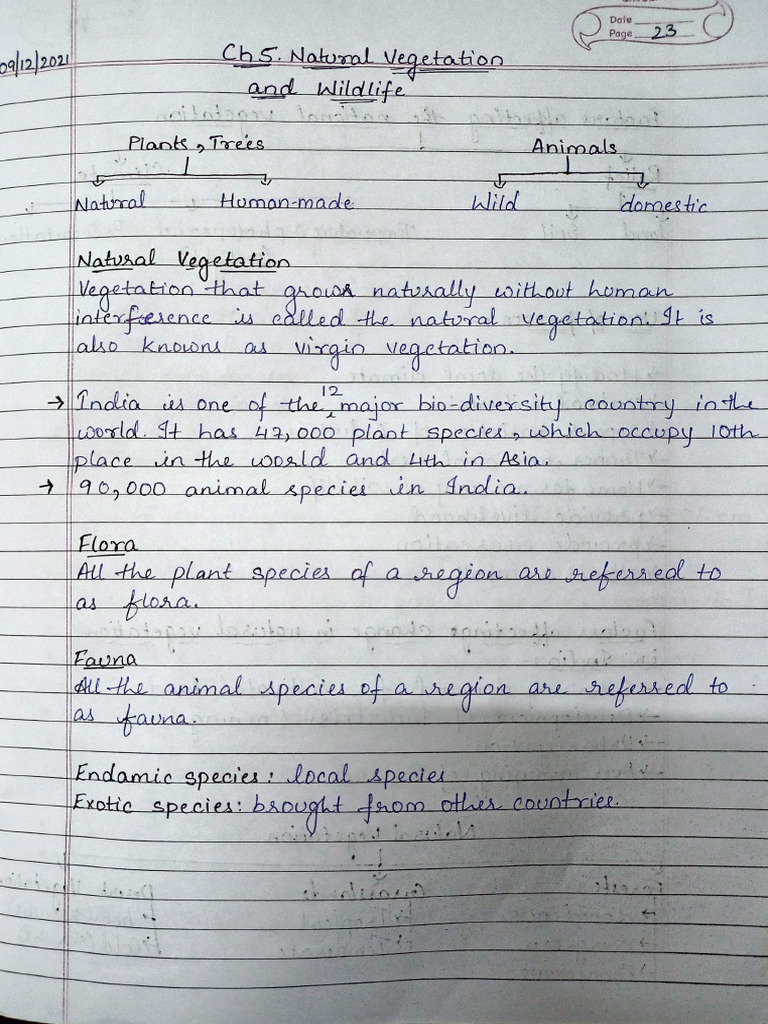 Date
Page 23
09/12/2021
Ch 5. Natural Vegetation
and Wildlife
Plants, Trees Animals
Natural Human-made Wild domestic
Natural Vegetation
Vegetation that grows naturally without human
interference is called the natural vegetation. It is
also knowns as virgin vegetation.
→ India is one of the 12 major bio-diversity country in the
world. It has 47,000 plant species, which occupy 10th
place in the world and 4th in Asia.
→ 90,000 animal species in India.
Flora
All the plant species of a region are referred to
as flora.
Fauna
All the animal species of a region are referred to
as fauna.
Endamic species: local species
Exotic species: brought from other countries.